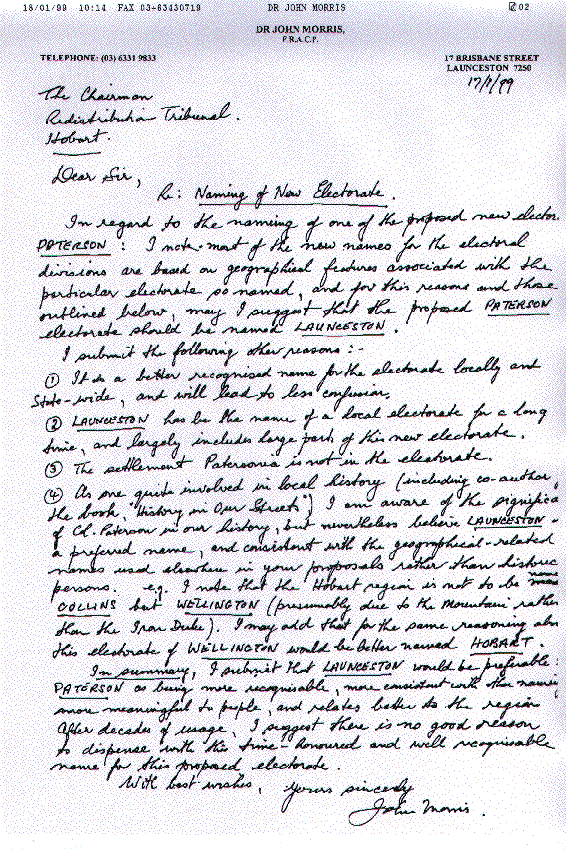 18/01/99 10:14 FAX 03-63430719 DR JOHN MORRIS 02
DR JOHN MORRIS,
F.R.A.C.P.
TELEPHONE: (03) 6331 9833 17 BRISBANE STREET
LAUNCESTON 7250
17/1/99
The Chairman
Redistribution Tribunal.
Hobart.
Dear Sir,
Re: Naming of New Electorate.
In regard to the naming of one of the proposed new elector
PATERSON : I note most of the new names for the electoral
divisions are based on geographical features associated with the
particular electorate so named, and for this reasons and those
outlined below, may I suggest that the proposed PATERSON
electorate should be named LAUNCESTON.
I submit the following other reasons :-
① It is a better recognised name for the electorate locally and
State-wide, and will lead to less confusion.
② LAUNCESTON has be the name of a local electorate for a long
time, and largely includes large part of this new electorate.
③ The settlement Patersonia is not in the electorate.
④ As one quite involved in local history (including co-author,
the book, "History in Our Streets") I am aware of the significa
of Col. Paterson in our history, but nevertheless believe LAUNCESTON
a preferred name, and consistent with the geographical-related
names used elsewhere in your proposals rather than historic
persons. e.g. I note that the Hobart region is not to be
COLLINS but WELLINGTON (presumably due to the Mountain rathe
than the Iron Duke). I may add that for the same reasoning abo
this electorate of WELLINGTON would be better named HOBART.
In summary, I submit that LAUNCESTON would be preferable
PATERSON as being more recognisable, more consistent with other namin
more meaningful to people, and relates better to the region
After decades of usage, I suggest there is no good reason
to dispense with this time-honoured and well recognisable
name for this proposed electorate.
With best wishes, Yours sincerely
John Morris.